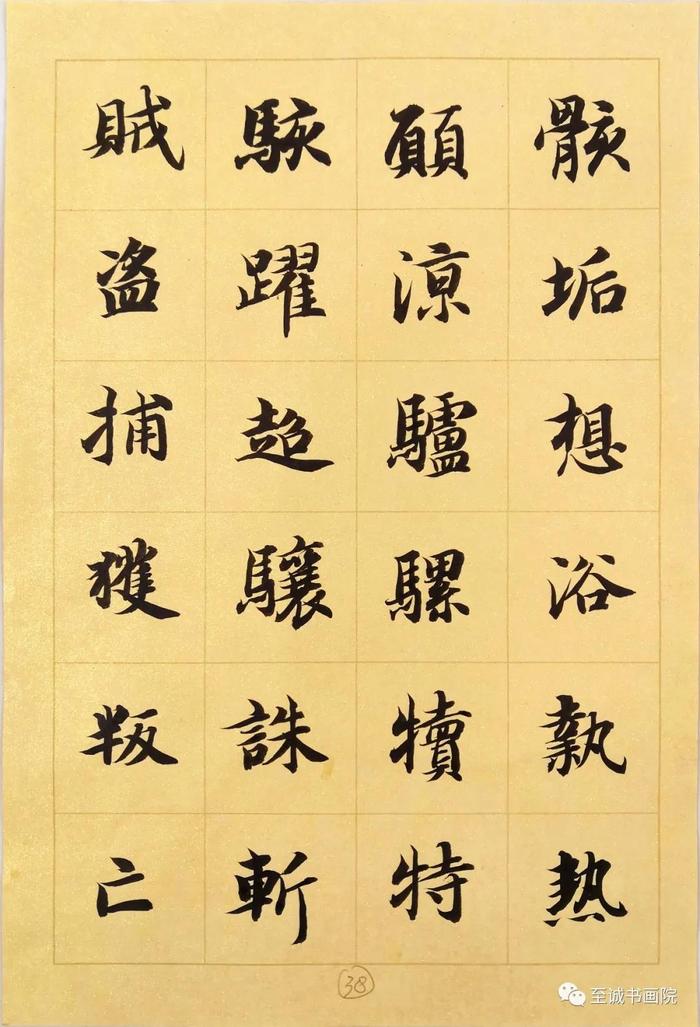 骸垢想浴執熱
願涼驢騾犢特
駭躍超驤誅斬
賊盜捕獲叛亡
38
至诚书画院